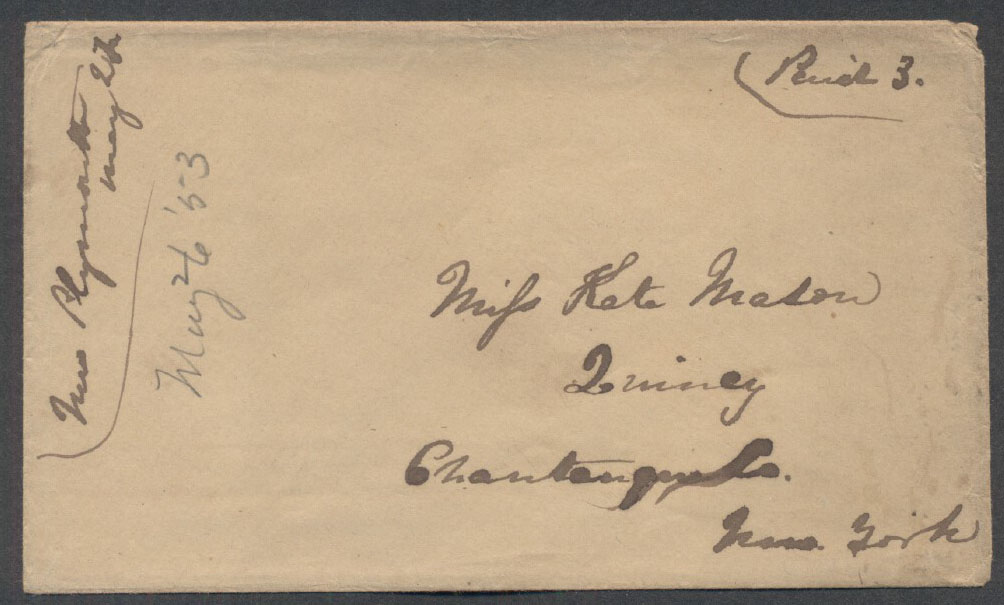 New Plymouth
May 26
May 26 '53
Paid 3.
Miss Kate Mason
Quincy
Chautauqua Co.
New York